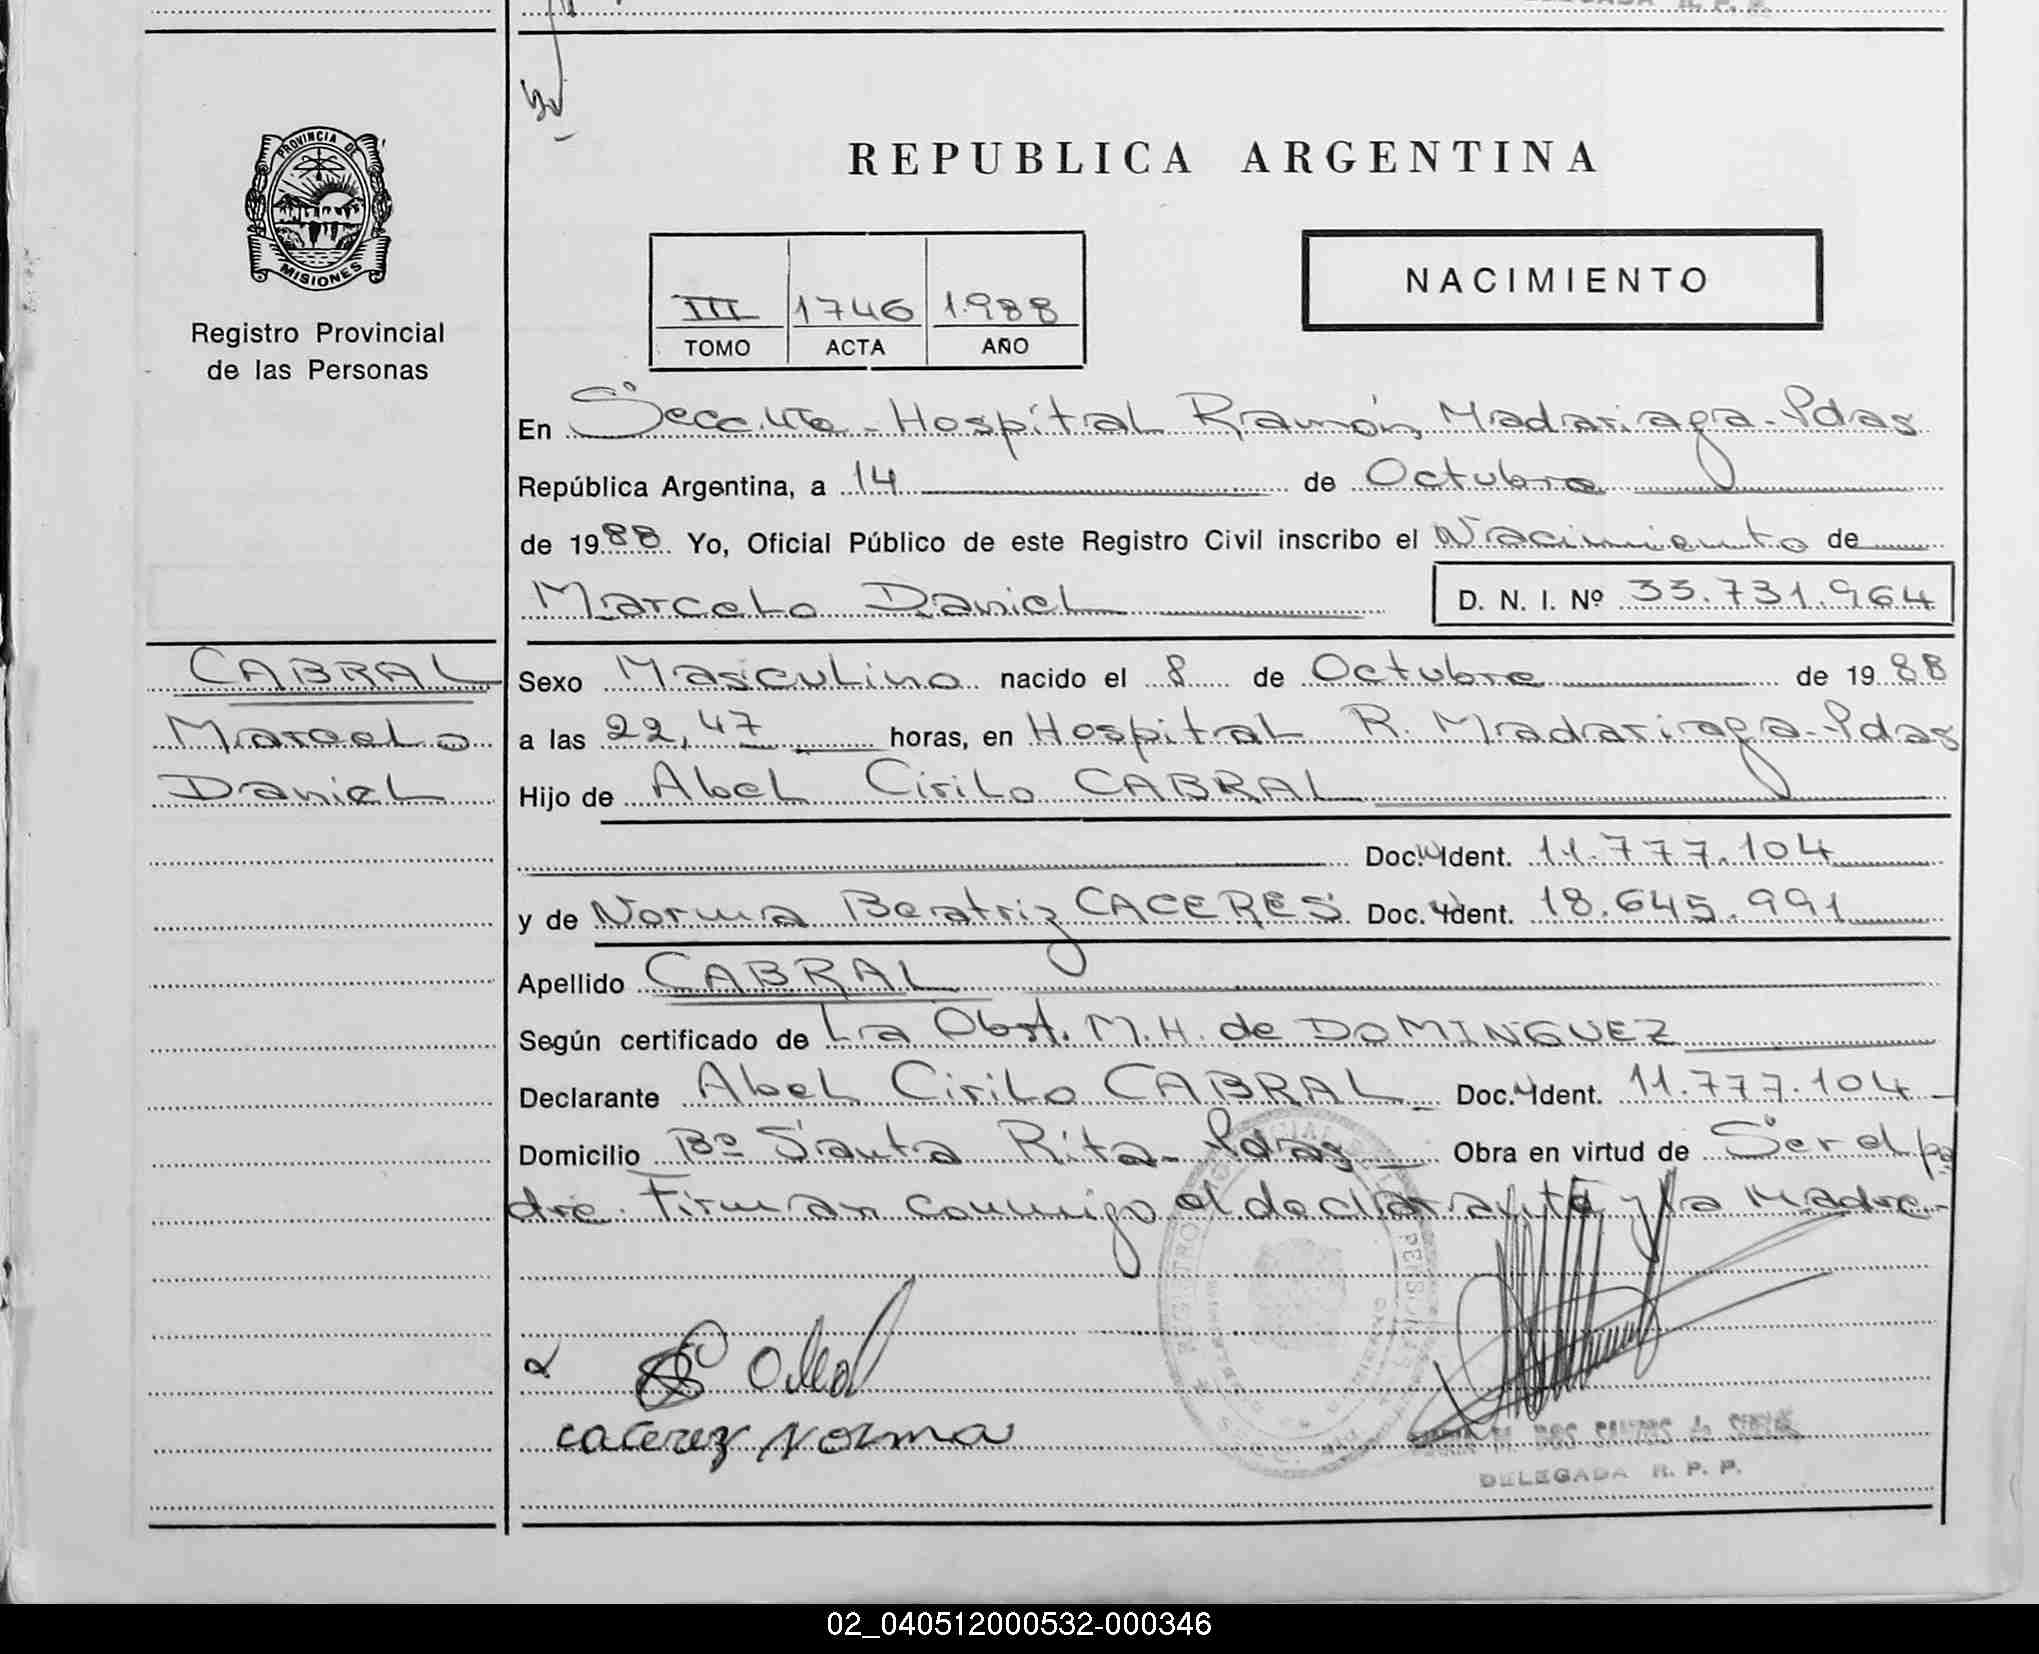 PROVINCIA DE
MISIONES
Registro Provincial
de las Personas
REPUBLICA ARGENTINA
NACIMIENTO
III 1746 1.988
TOMO ACTA AÑO
En Secc. 4ta - Hospital Ramón Madariaga - Pdas
República Argentina, a 14 de Octubre
de 1988 Yo, Oficial Público de este Registro Civil inscribo el Nacimiento de
Marcelo Daniel D. N. I. Nº 33.731.964
CABRAL
Marcelo
Daniel
Sexo Masculino nacido el 8 de Octubre de 1988
a las 22,47 horas, en Hospital R. Madariaga - Pdas
Hijo de Abel Cirilo CABRAL
Doc. Ident. 11.777.104
y de Norma Beatriz CACERES Doc. Ident. 18.645.991
Apellido CABRAL
Según certificado de La Obst. M. H. de DOMINGUEZ
Declarante Abel Cirilo CABRAL Doc. Ident. 11.777.104
Domicilio Bº Santa Rita - Pdas Obra en virtud de Ser el pa
dre. Firman conmigo el declarante y la Madre -
cacerez Norma
DOS SANTOS de
DELEGADA R. P. P.
02_040512000532-000346